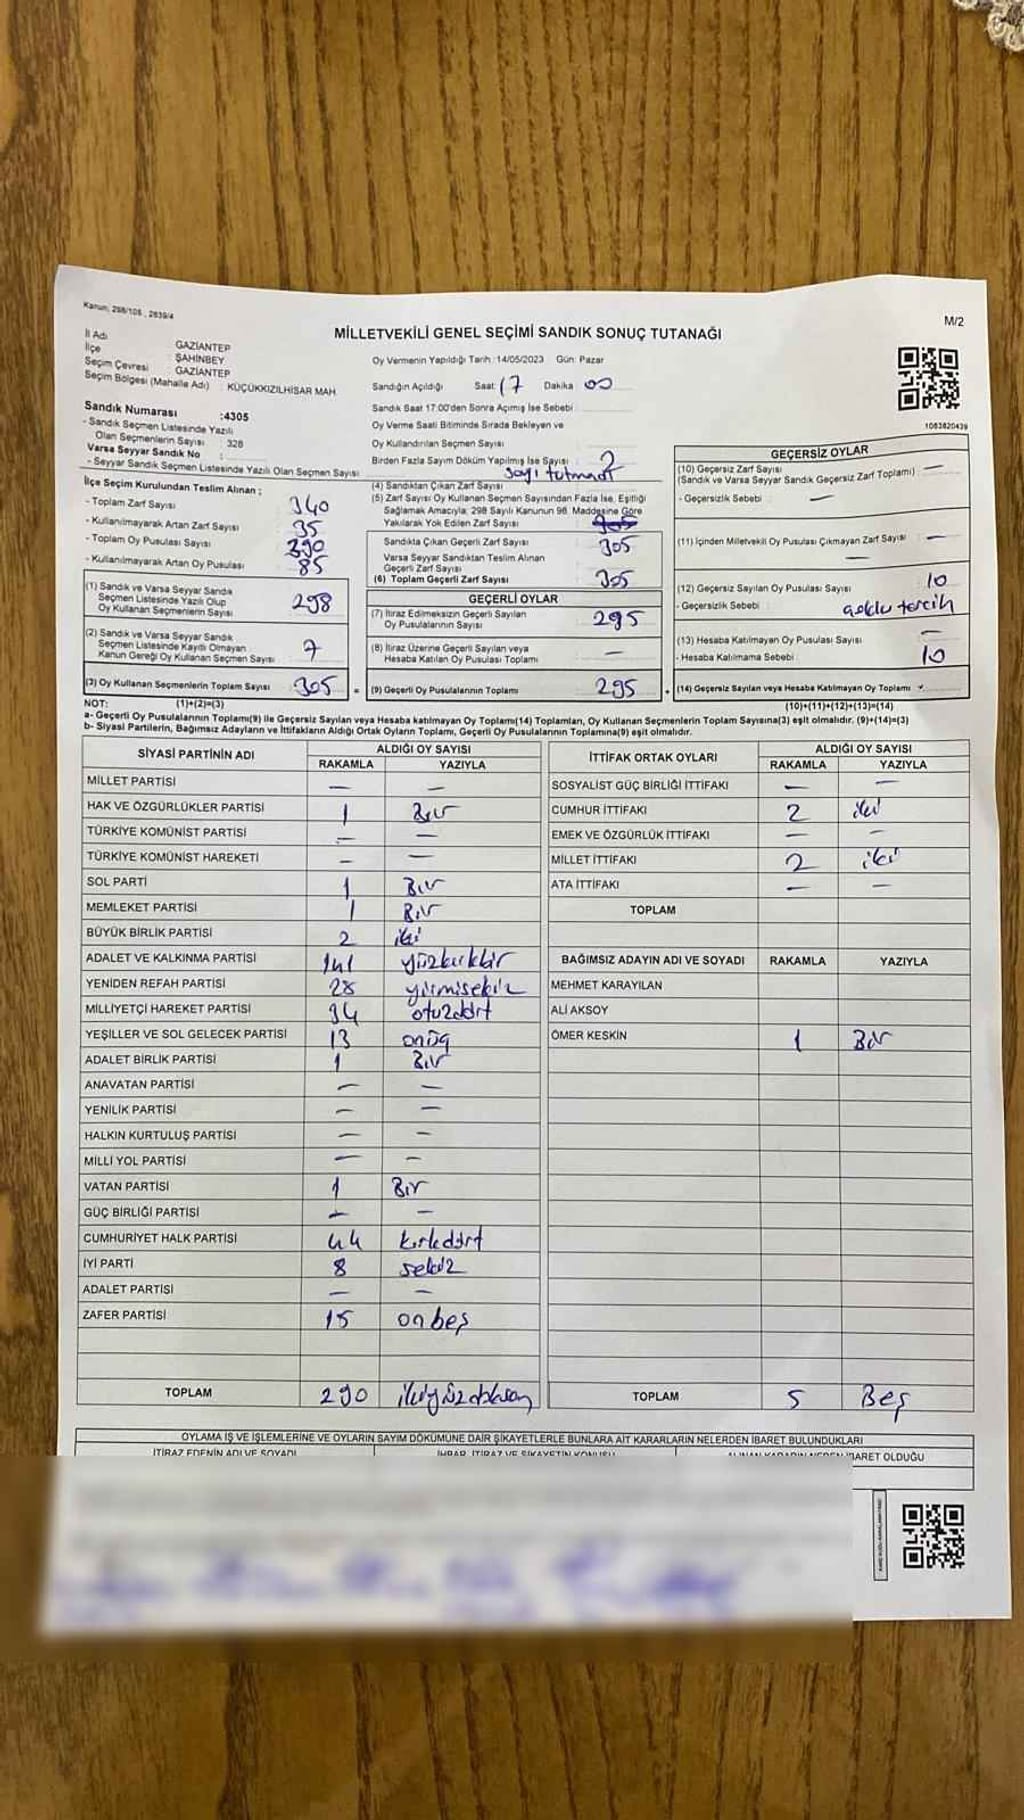 Kanun; 298/105 , 2839/4
M/2
MİLLETVEKİLİ GENEL SEÇİMİ SANDIK SONUÇ TUTANAĞI
İl Adı GAZİANTEP
İlçe ŞAHİNBEY
Seçim Çevresi GAZİANTEP
Seçim Bölgesi (Mahalle Adı) : KÜÇÜKKIZILHİSAR MAH
Sandık Numarası :4305
- Sandık Seçmen Listesinde Yazılı
Olan Seçmenlerin Sayısı : 328
Varsa Seyyar Sandık No :
- Seyyar Sandık Seçmen Listesinde Yazılı Olan Seçmen Sayısı
Oy Vermenin Yapıldığı Tarih :14/05/2023 Gün: Pazar
Sandığın Açıldığı Saat: 17 Dakika 00
Sandık Saat 17:00'den Sonra Açmış İse Sebebi
Oy Verme Saati Bitiminde Sırada Bekleyen ve
Oy Kullandırılan Seçmen Sayısı
Birden Fazla Sayım Döküm Yapılmış İse Sayısı 2
sayı tutmadı
1083820439
İlçe Seçim Kurulundan Teslim Alınan ;
- Toplam Zarf Sayısı 340
- Kullanılmayarak Artan Zarf Sayısı 35
- Toplam Oy Pusulası Sayısı 390
- Kullanılmayarak Artan Oy Pusulası 85
(1) Sandık ve Varsa Seyyar Sandık
Seçmen Listesinde Yazılı Olup
Oy Kullanan Seçmenlerin Sayısı 298
(2) Sandık ve Varsa Seyyar Sandık
Seçmen Listesinde Kayıtlı Olmayan
Kanun Gereği Oy Kullanan Seçmen Sayısı 7
(3) Oy Kullanan Seçmenlerin Toplam Sayısı 305 =
(1)+(2)=(3)
(4) Sandıktan Çıkan Zarf Sayısı
(5) Zarf Sayısı Oy Kullanan Seçmen Sayısından Fazla İse, Eşitliği
Sağlamak Amacıyla; 298 Sayılı Kanunun 98. Maddesine Göre
Yakılarak Yok Edilen Zarf Sayısı 305
Sandıkta Çıkan Geçerli Zarf Sayısı 305
Varsa Seyyar Sandıktan Teslim Alınan
Geçerli Zarf Sayısı
(6) Toplam Geçerli Zarf Sayısı 305
GEÇERLİ OYLAR
(7) İtiraz Edilmeksizin Geçerli Sayılan
Oy Pusulalarının Sayısı 295
(8) İtiraz Üzerine Geçerli Sayılan veya
Hesaba Katılan Oy Pusulası Toplamı —
(9) Geçerli Oy Pusulalarının Toplamı 295 +
GEÇERSİZ OYLAR
(10) Geçersiz Zarf Sayısı —
(Sandık ve Varsa Seyyar Sandık Geçersiz Zarf Toplamı)
- Geçersizlik Sebebi : —
(11) İçinden Milletvekili Oy Pusulası Çıkmayan Zarf Sayısı —
—
(12) Geçersiz Sayılan Oy Pusulası Sayısı 10
- Geçersizlik Sebebi : çoklu tercih
(13) Hesaba Katılmayan Oy Pusulası Sayısı —
- Hesaba Katılmama Sebebi 10
(14) Geçersiz Sayılan veya Hesaba Katılmayan Oy Toplamı
(10)+(11)+(12)+(13)=(14)
NOT:
a- Geçerli Oy Pusulalarının Toplamı(9) ile Geçersiz Sayılan veya Hesaba katılmayan Oy Toplamı(14) Toplamları, Oy Kullanan Seçmenlerin Toplam Sayısına(3) eşit olmalıdır. (9)+(14)=(3)
b- Siyasi Partilerin, Bağımsız Adayların ve İttifakların Aldığı Ortak Oyların Toplamı, Geçerli Oy Pusulalarının Toplamına(9) eşit olmalıdır.
SİYASİ PARTİNİN ADI ALDIĞI OY SAYISI
RAKAMLA YAZIYLA
MİLLET PARTİSİ — —
HAK VE ÖZGÜRLÜKLER PARTİSİ 1 Bir
TÜRKİYE KOMÜNİST PARTİSİ — —
TÜRKİYE KOMÜNİST HAREKETİ — —
SOL PARTİ 1 Bir
MEMLEKET PARTİSİ 1 Bir
BÜYÜK BİRLİK PARTİSİ 2 iki
ADALET VE KALKINMA PARTİSİ 141 yüzkırkbir
YENİDEN REFAH PARTİSİ 28 yirmisekiz
MİLLİYETÇİ HAREKET PARTİSİ 34 otuzdört
YEŞİLLER VE SOL GELECEK PARTİSİ 13 onüç
ADALET BİRLİK PARTİSİ 1 Bir
ANAVATAN PARTİSİ — —
YENİLİK PARTİSİ — —
HALKIN KURTULUŞ PARTİSİ — —
MİLLİ YOL PARTİSİ — —
VATAN PARTİSİ 1 Bir
GÜÇ BİRLİĞİ PARTİSİ — —
CUMHURİYET HALK PARTİSİ 44 kırkdört
İYİ PARTİ 8 sekiz
ADALET PARTİSİ — —
ZAFER PARTİSİ 15 onbeş
TOPLAM 290 ikiyüzdoksan
İTTİFAK ORTAK OYLARI ALDIĞI OY SAYISI
RAKAMLA YAZIYLA
SOSYALİST GÜÇ BİRLİĞİ İTTİFAKI — —
CUMHUR İTTİFAKI 2 iki
EMEK VE ÖZGÜRLÜK İTTİFAKI — —
MİLLET İTTİFAKI 2 iki
ATA İTTİFAKI — —
TOPLAM
BAĞIMSIZ ADAYIN ADI VE SOYADI RAKAMLA YAZIYLA
MEHMET KARAYILAN
ALİ AKSOY
ÖMER KESKİN 1 Bir
TOPLAM 5 Beş
OYLAMA İŞ VE İŞLEMLERİNE VE OYLARIN SAYIM DÖKÜMÜNE DAİR ŞİKAYETLERLE BUNLARA AİT KARARLARIN NELERDEN İBARET BULUNDUKLARI
İTİRAZ EDENİN ADI VE SOYADI İHBAR, İTİRAZ VE ŞİKAYETİN KONUSU ALINAN KARARIN NEDEN İBARET OLDUĞU